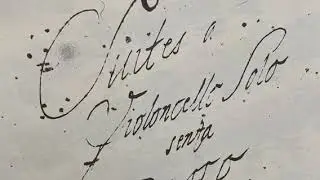 Suites a
Violoncello Solo
senza